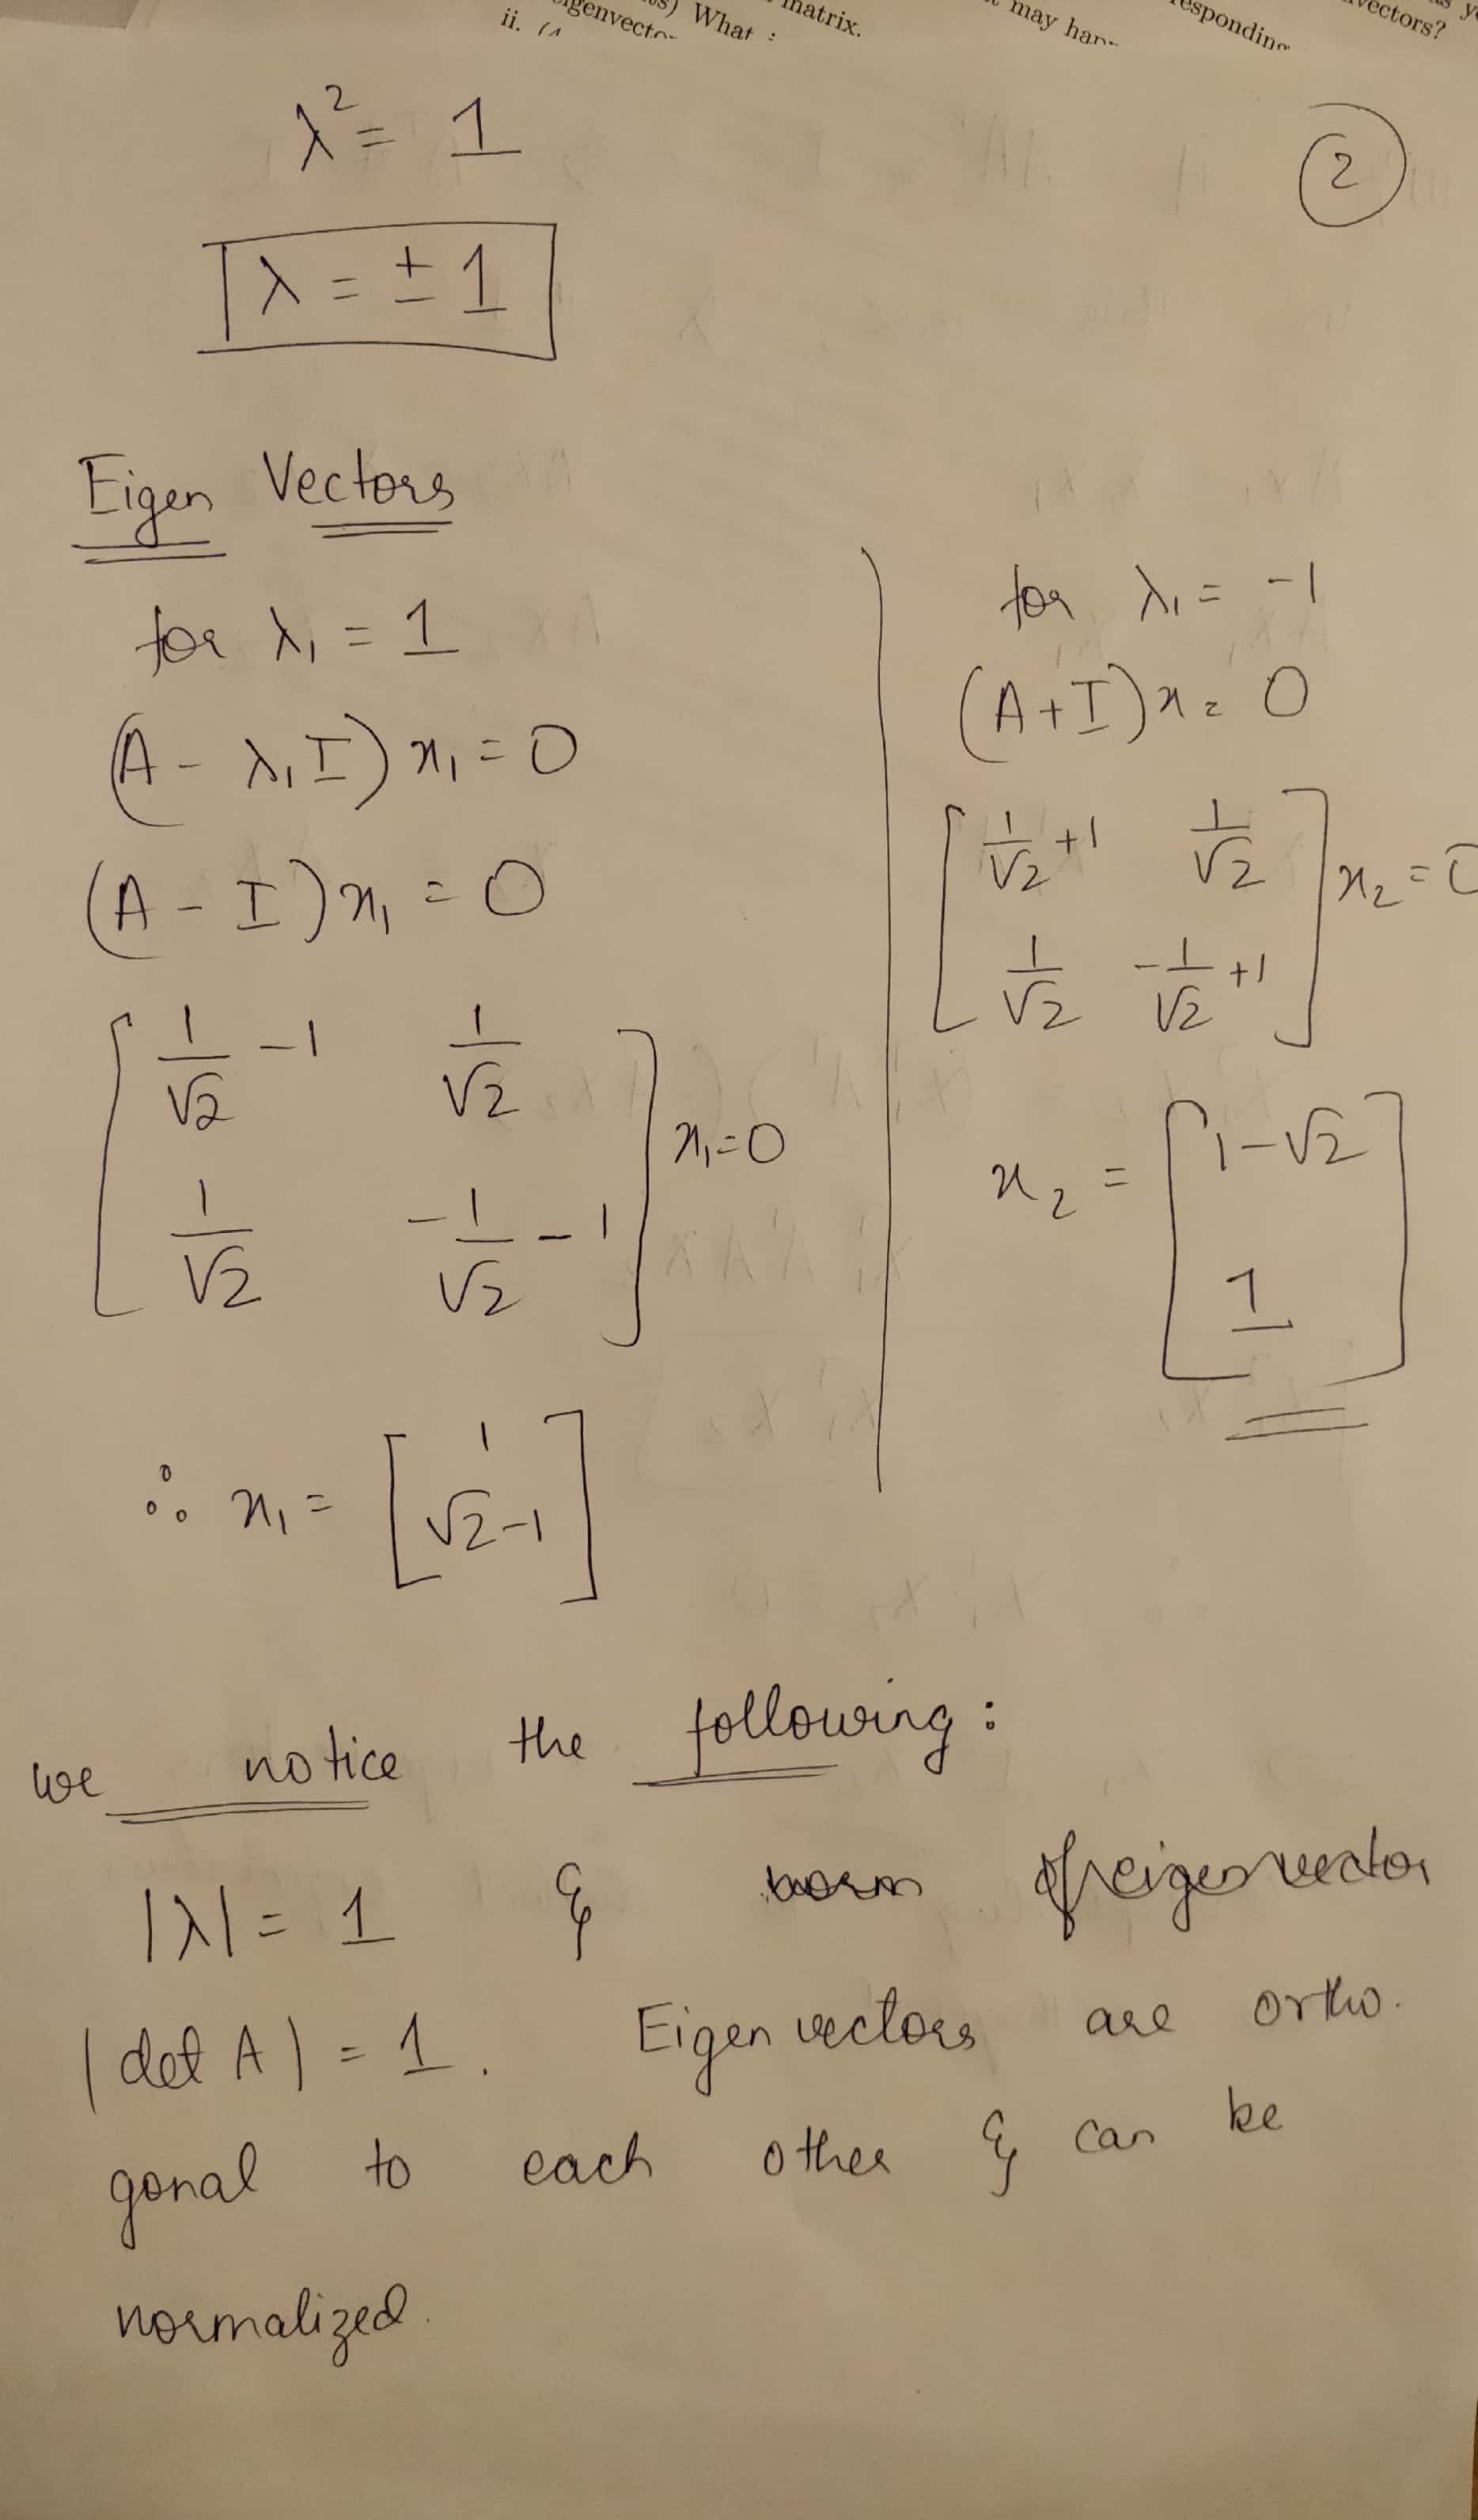 genvecto
ii.
What
matrix.
may hap
esponding
vectors?
λ² = 1
2
λ = ± 1
Eigen Vectors
for λ₁ = 1
(A - λ₁I) x₁ = 0
(A - I) x₁ = 0
[ 1/√2 - 1   1/√2 ]
[ 1/√2   -1/√2 - 1 ] x₁ = 0
∴ x₁ = [ 1
√2-1 ]
for λ₁ = -1
(A+I) x = 0
[ 1/√2 +1   1/√2 ]
[ 1/√2   -1/√2 +1 ] x₂ = 0
x₂ = [ 1-√2
1 ]
we notice the following:
|λ| = 1 & norm of eigenvector
|det A| = 1. Eigen vectors are ortho.
gonal to each other & can be
normalized.